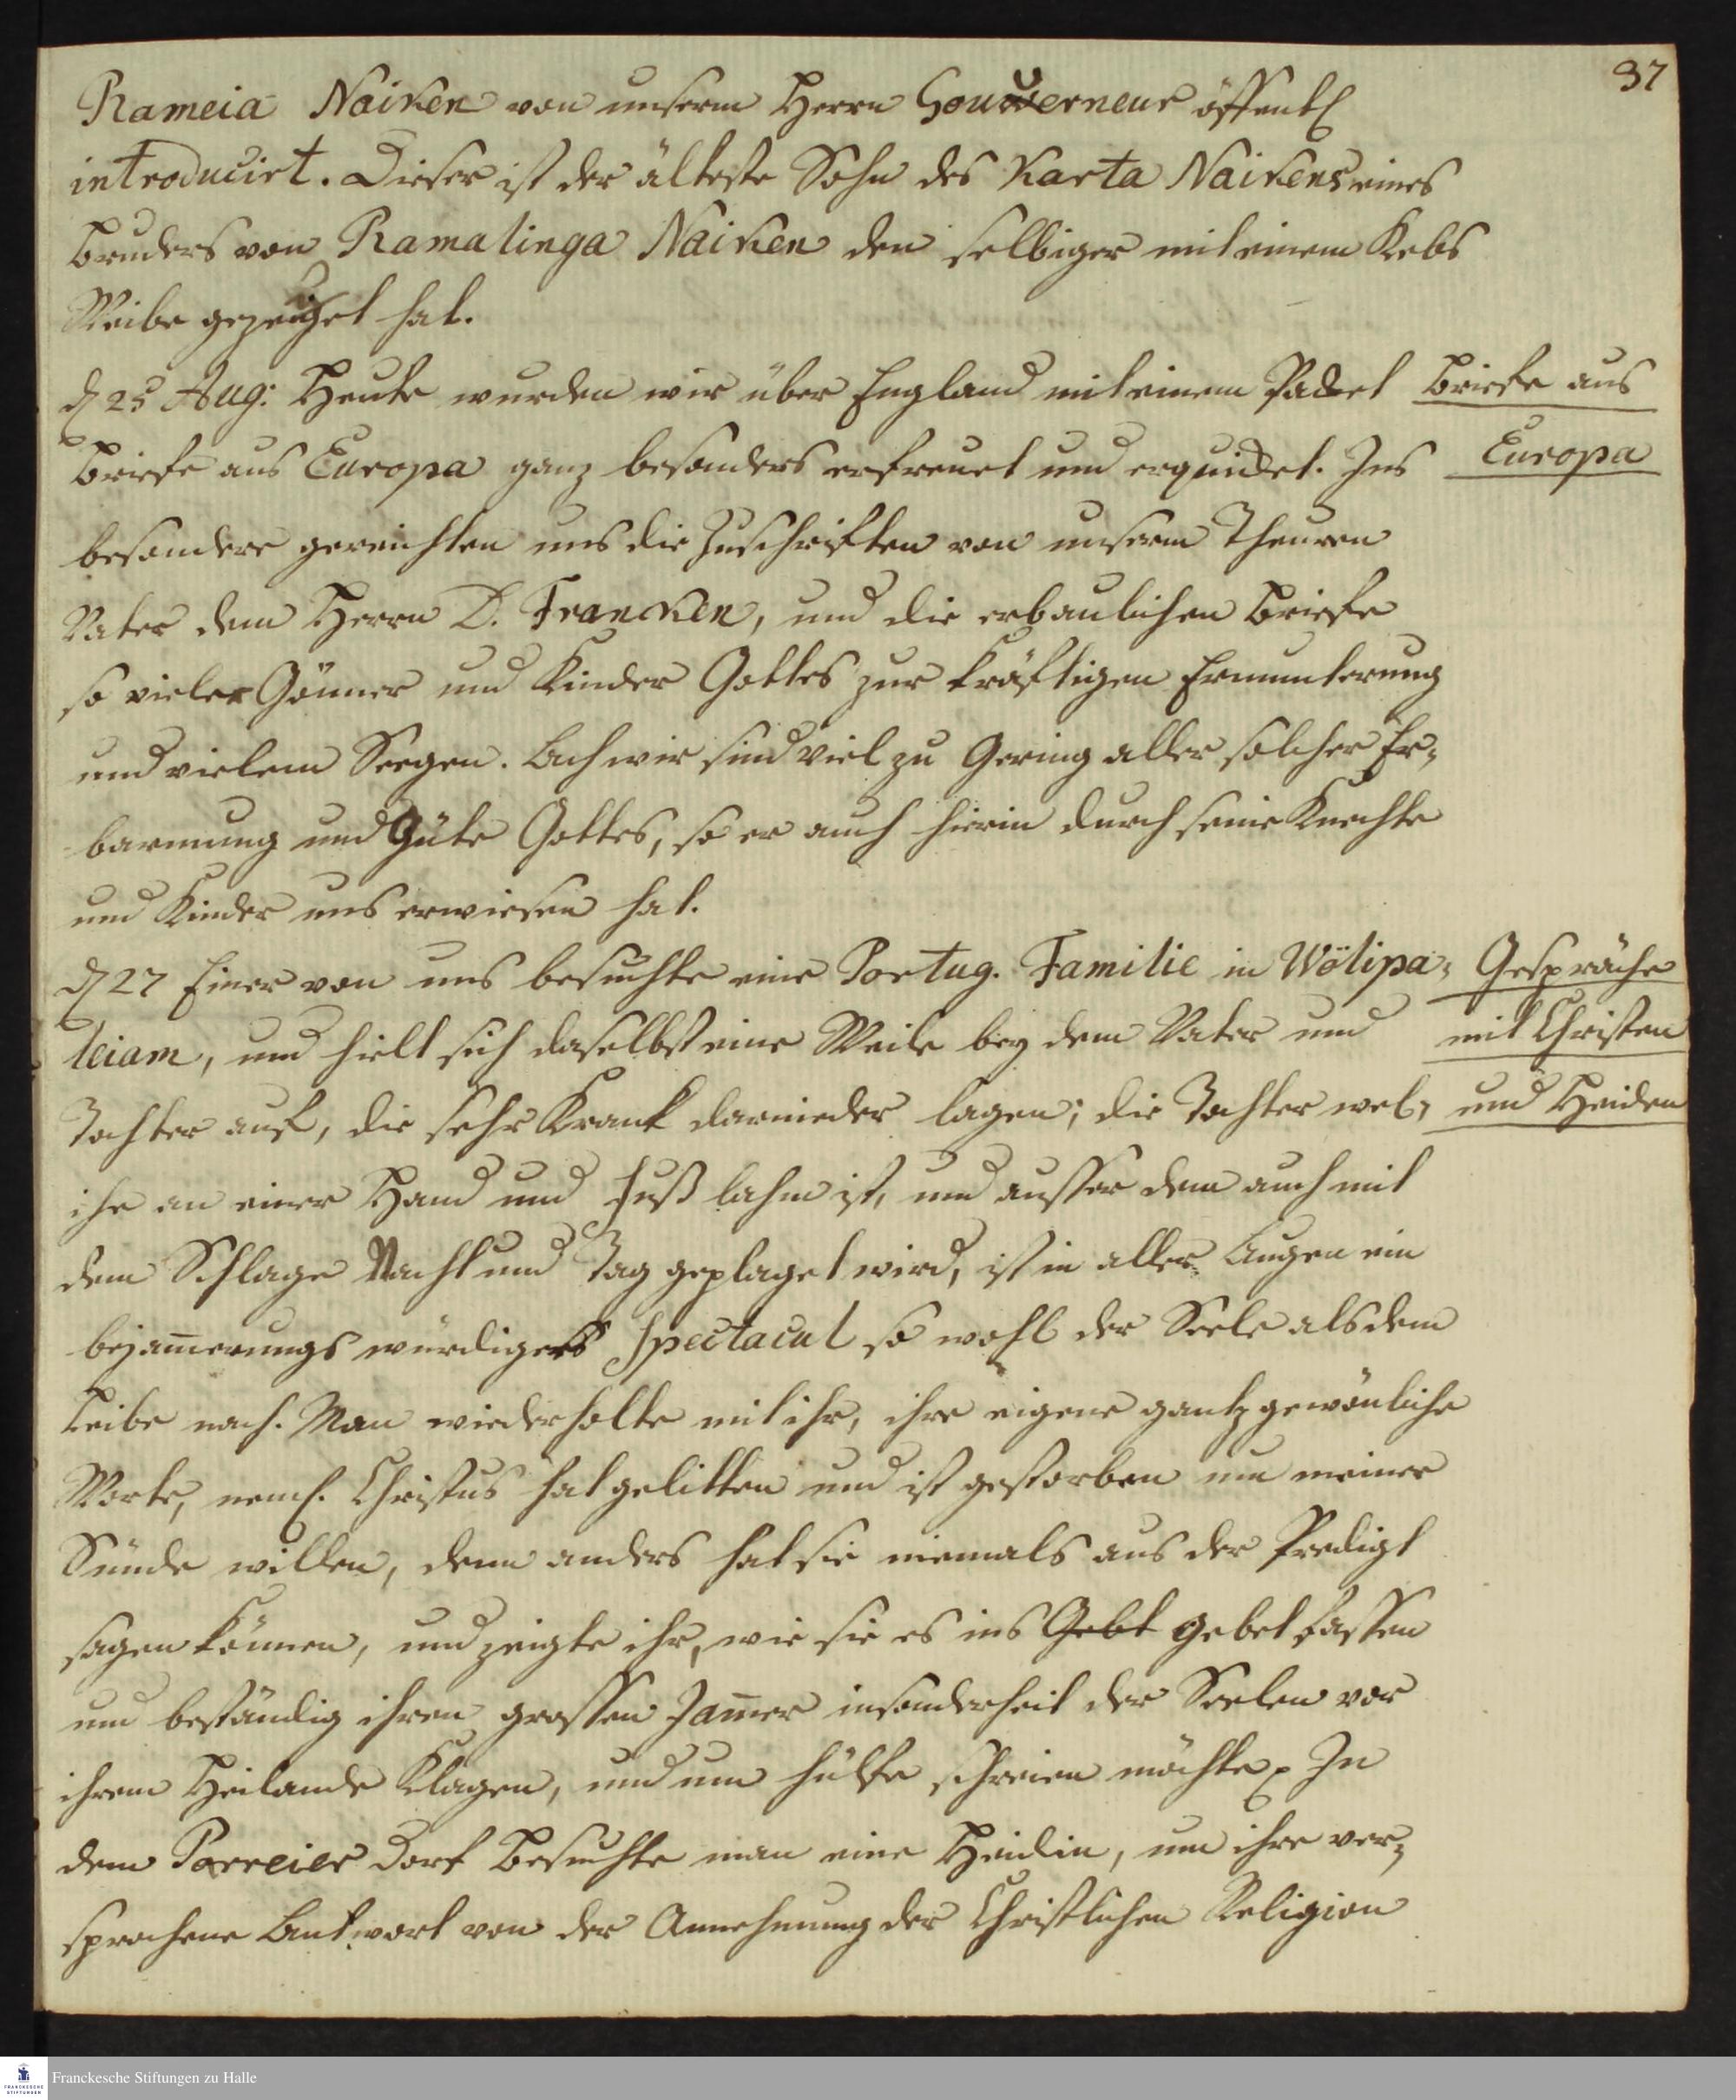 37
Rameia Naiken von unserm Herrn Gouverneur öffentl
introducirt. Dieser ist der älteste Sohn des Karta Naikens eines
bruders von Ramalinga Naiken den selbiger mit einem Kebs
Weibe gezeuget hat.
d 25 Aug: Heute wurden wir über England mit einem Packet
briefe aus Europa ganz besonders erfreuet und erquicket. Ins
besondere gereichten uns die Zuschriften von unserm Theuren
Vater dem Herrn D. Francken, und die erbaulichen briefe
so vieler Gönner und Kinder Gottes zur kräftigen Ermunterung
und vielem Seegen. Ach wir sind viel zu Gering aller solcher Er-
barmung und Güte Gottes, so er auch hierin durch seine Knechte
und Kinder uns erwiesen hat.
d 27 Einer von uns besuchte eine Portug. Familie in Wölipa-
leiam, und hielt sich daselbst eine Weile bey dem Vater und
Tochter auf, die sehr Krank darnieder lagen; die Tochter wel-
che an einer Hand und Fuß lahm ist, und ausser dem auch mit
dem Schlage Nacht und Tag geplaget wird, ist in aller Augen ein
bejam̄erungs würdiges Spectacul so wohl der Seele als dem
Leibe nach. Man wiederholte mit ihr, ihre eigene gantz gewönliche
Worte, neml. Christus hat gelitten und ist gestorben um meiner
Sünde willen, denn anders hat sie niemals aus der Predigt
sagen können, und zeigte ihr, wie sie es ins Gebt gebet fassen
und beständig ihren grossen Jam̄er insonderheit der Seelen vor
ihrem Heilande Klagen, und um hülfe schreien möchte. In
dem Parreier Dorf besuchte man eine Heidin, um ihre ver-
sprochene Antwort von der Annehmung der Christlichen Religion
briefe aus
Europa
Gespräche
mit Christen
und Heiden
Franckesche Stiftungen zu Halle
FRANCKESCHE
STIFTUNGEN